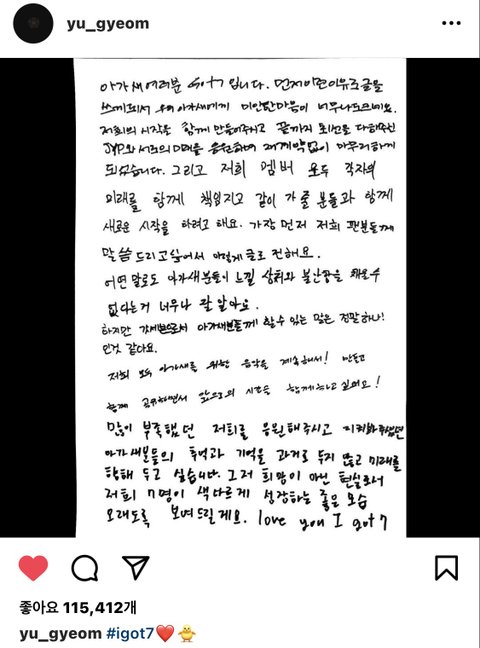 yu_gyeom
아가새 여러분 Got7 입니다. 먼저 이런 이유로 글을
쓰게 되서 우리 아가새에게 미안한 마음이 너무나 크네요.
저희의 시작을 함께 만들어주시고 끝까지 최선을 다해주신
JYP와 서로의 미래를 응원하며 재계약 없이 마무리하게
되었습니다. 그리고 저희 멤버 모두 각자의
미래를 함께 책임지고 같이 가줄 분들과 함께
새로운 시작을 하려고 해요. 가장 먼저 저희 팬분들께
말씀드리고 싶어서 이렇게 글로 전해요.
어떤 말로도 아가새분들이 느낄 상처와 불안감을 채울 수
없다는 거 너무나 잘 알아요.
하지만 갓세븐으로서 아가새분들께 할 수 있는 말은 정말 하나!
인것 같아요.
저희 모두 아가새를 위한 음악을 계속해서! 만들고
함께 공유하면서 앞으로의 시간을 함께하고 싶어요!
많이 부족했던 저희를 응원해주시고 지켜봐주셨던
아가새분들의 추억과 기억을 과거로 두지 않고 미래를
향해 두고 싶습니다. 그저 희망이 아닌 현실로서
저희 7명이 색다르게 성장하는 좋은 모습
오래도록 보여드릴게요. love you I got7
좋아요 115,412개
yu_gyeom #igot7❤️🐥